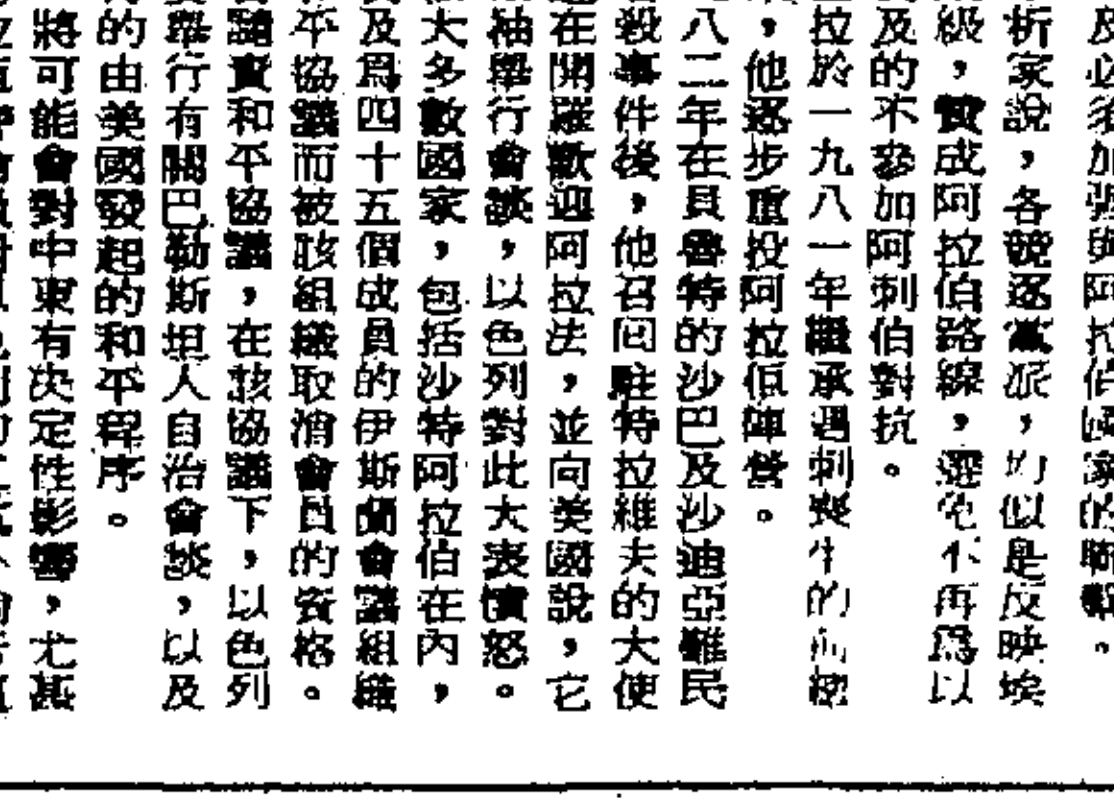 及必須加強與阿拉伯國家的聯繫。
析家說，各競逐黨派，均似是反映埃
級，贊成阿拉伯路線，選它不再爲以
及的不參加阿刺伯對抗。
拉於一九八一年繼承遇刺喪生的
，他逐步重投阿拉伯陣營。
八二年在貝魯特的沙巴及沙迪亞難民
殺事件後，他召回駐特拉維夫的大使
在開羅歡迎阿拉法，並向美國說，它
袖舉行會談，以色列對此大表憤怒。
大多數國家，包括沙特阿拉伯在內，
及爲四十五個成員的伊斯蘭會議組織
平協議而被該組織取消會員的資格。
責和平協議，在該協議下，以色列
舉行有關巴勒斯坦人自治會談，以及
的由美國發起的和平程序。
將可能會對中東有決定性影響，尤甚